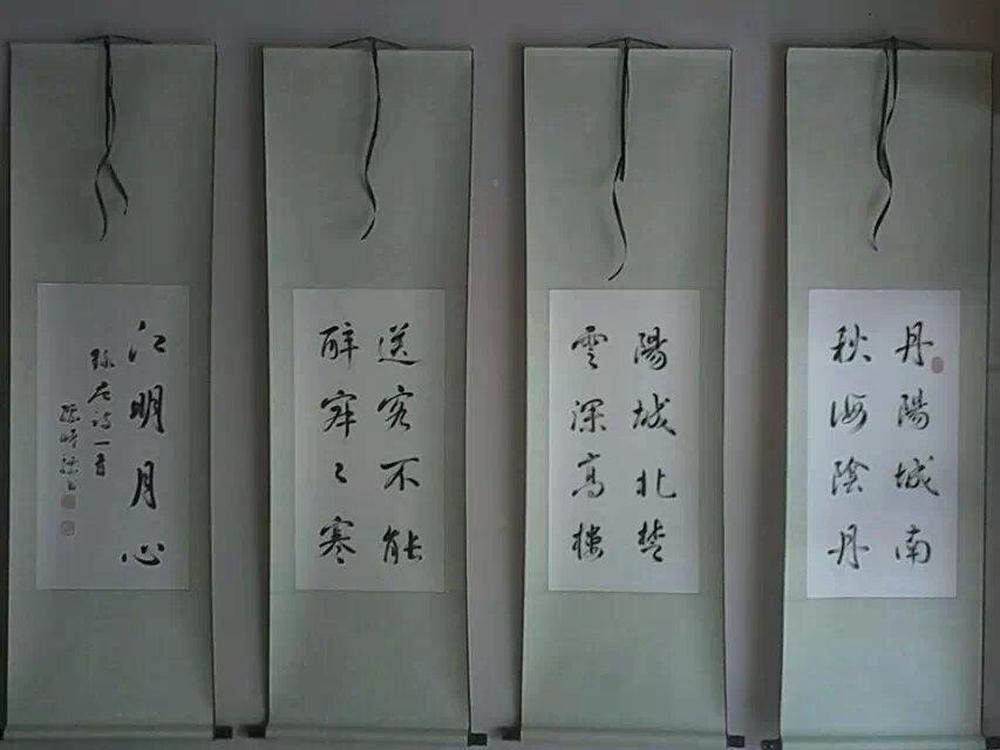 丹陽城南
秋海陰丹
陽城北楚
雲深高樓
送客不能
醉寂〻寒
江明月心
詩一首